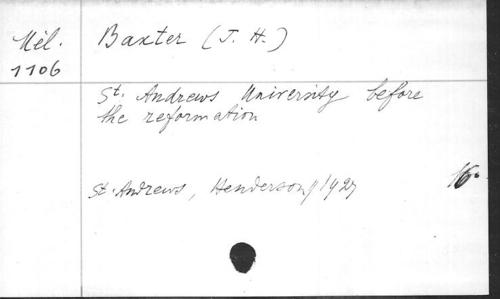 Mél. Baxter (J. H.)
1106
St. Andrews University before
the reformation
St. Andrews, Henderson, 1927
16.